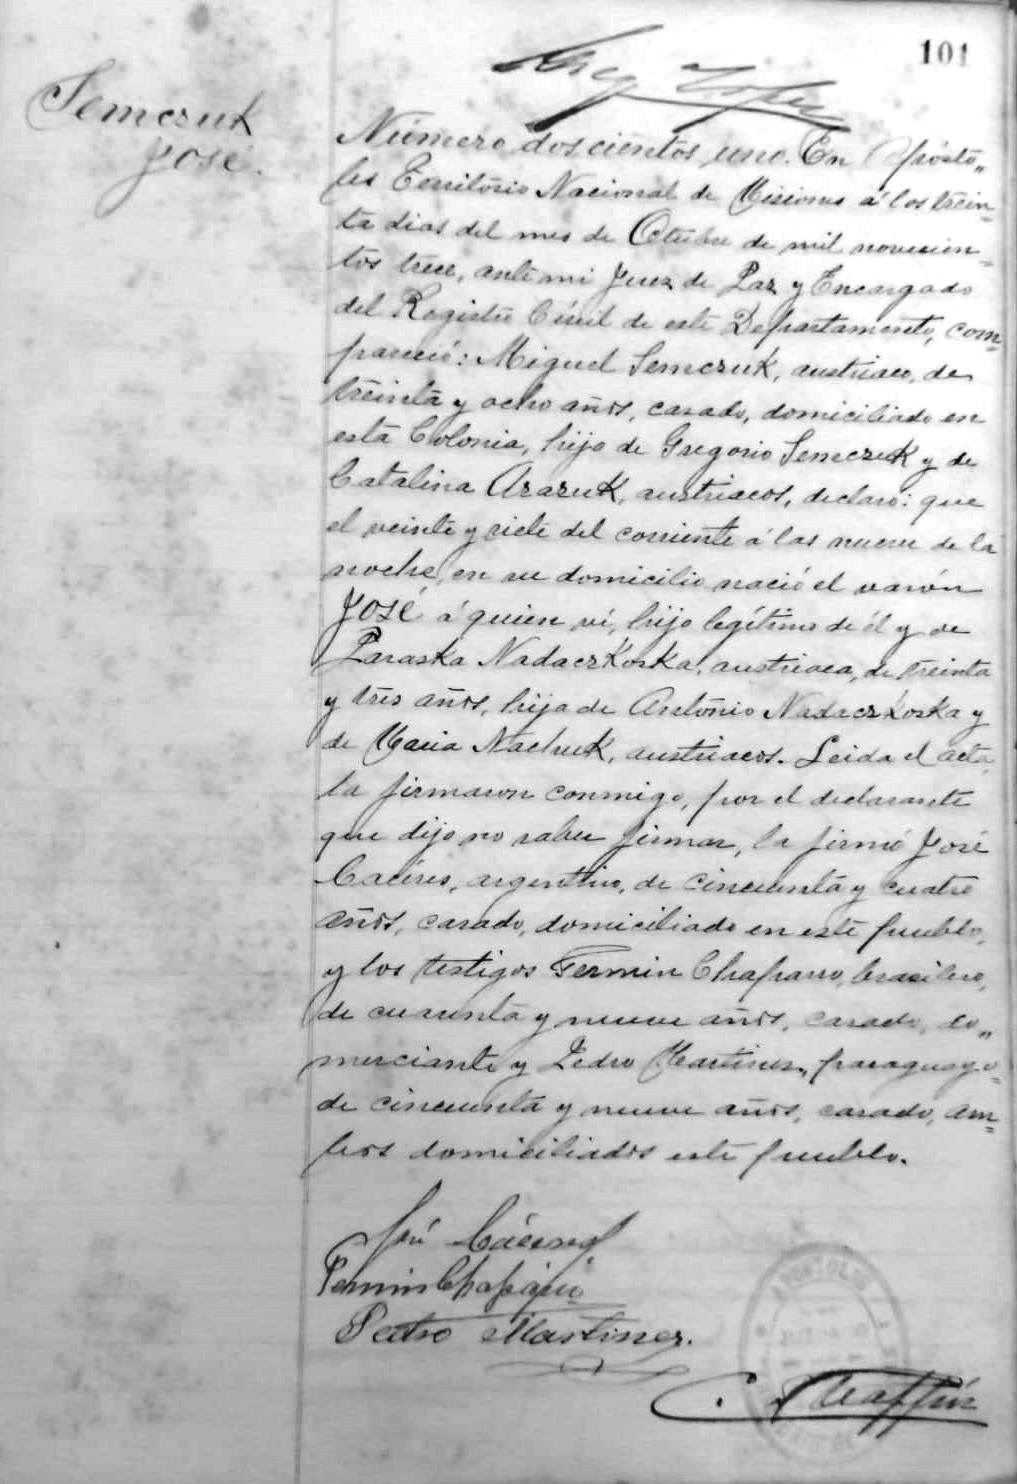 101
Semczuk
José.
Número doscientos uno. En Aposto„
les Territorio Nacional de Misiones á los trein=
ta dias del mes de Octubre de mil novecien=
tos trece, ante mi Juez de Paz y Encargado
del Registro Civil de este Departamento, com=
pareció: Miguel Semczuk, austriaco, de
treinta y ocho años, casado, domiciliado en
esta Colonia, hijo de Gregorio Semczuk y de
Catalina Azazuk, austriacos, declaro: que
el veinte y siete del corriente á las nueve de la
noche, en su domicilio nació el varón
JOSÉ á quien ví, hijo legítimo de él y de
Paraska Nadaczkoska, austriaca, de treinta
y tres años, hija de Antonio Nadaczkoska y
de Maria Nachuk, austriacos. Leida el acta,
la firmaron conmigo, por el declarante
que dijo no saber firmar, la firmó José
Cacéres, argentino, de cincuenta y cuatro
años, casado, domiciliado en este pueblo,
y los testigos Fermin Chaparro, brasilero,
de cuarenta y nueve años, casado, co„
merciante y Pedro Martinez, paraguayo=
de cincuenta y nueve años, casado, am=
bos domiciliados este pueblo.
José Cáceres
Fermin Chaparro
Pedro Martinez.
APOSTOLES